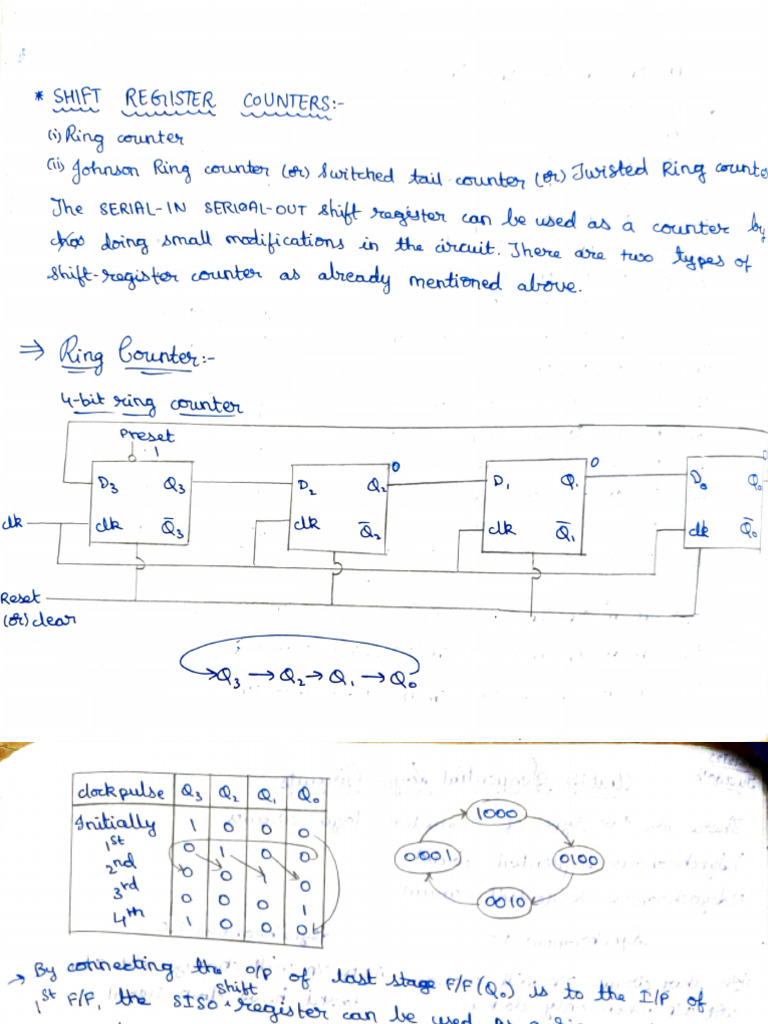 * SHIFT REGISTER COUNTERS:-
(i) Ring counter
(ii) Johnson Ring counter (or) Switched tail counter (or) Twisted Ring counte
The SERIAL-IN SERIAL-OUT shift register can be used as a counter by
doing small modifications in the circuit. There are two types of
shift-register counter as already mentioned above.
⇒ Ring Counter:-
4-bit ring counter
Preset
1
D3 Q3 D2 Q2 0 D1 Q1 0 D0 Q0 0
clk clk Q̅3 clk Q̅2 clk Q̅1 clk Q̅0
Reset
(or) clear
→Q3 → Q2 → Q1 → Q0
clock pulse Q3 Q2 Q1 Q0
Initially 1 0 0 0
1st 0 1 0 0
2nd 0 0 1 0
3rd 0 0 0 1
4th 1 0 0 0
1000
0001 0100
0010
→ By connecting the O/P of last stage F/F (Q0) is to the I/P of
1st F/F, the SISO shift register can be used as a